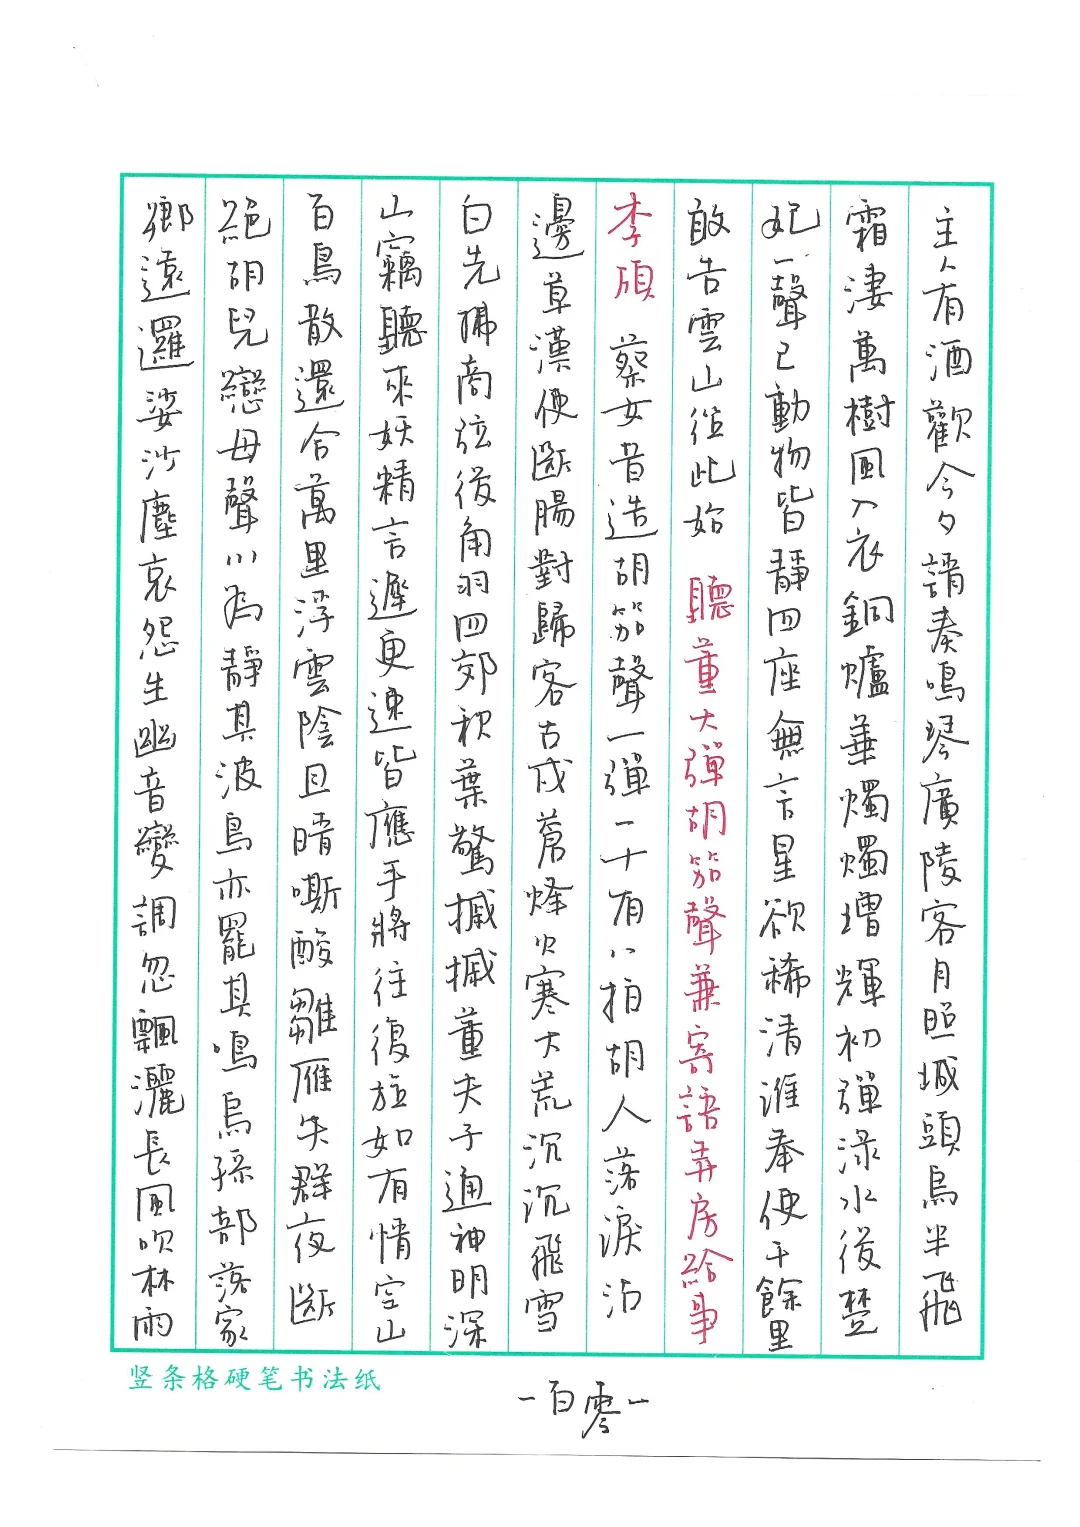 主人有酒歡今夕請奏鳴琴廣陵客月照城頭烏半飛
霜淒萬樹風入衣銅爐華燭燭增輝初彈淥水後楚
妃一聲已動物皆靜四座無言星欲稀清淮奉使千餘里
敢告雲山從此始 聽董大彈胡笳聲兼寄語弄房給事
李頎 蔡女昔造胡笳聲一彈一十有八拍胡人落淚沾
邊草漢使斷腸對歸客古戍蒼蒼烽火寒大荒沉沉飛雪
白先拂商弦後角羽四郊秋葉驚摵摵董夫子通神明深
山竊聽來妖精言遲更速皆應手將往復旋如有情空山
百鳥散還合萬里浮雲陰且晴嘶酸雛雁失群夜斷
絕胡兒戀母聲川為靜其波鳥亦罷其鳴烏孫部落家
鄉遠邏娑沙塵哀怨生幽音變調忽飄灑長風吹林雨
竖条格硬笔书法纸
一百零一